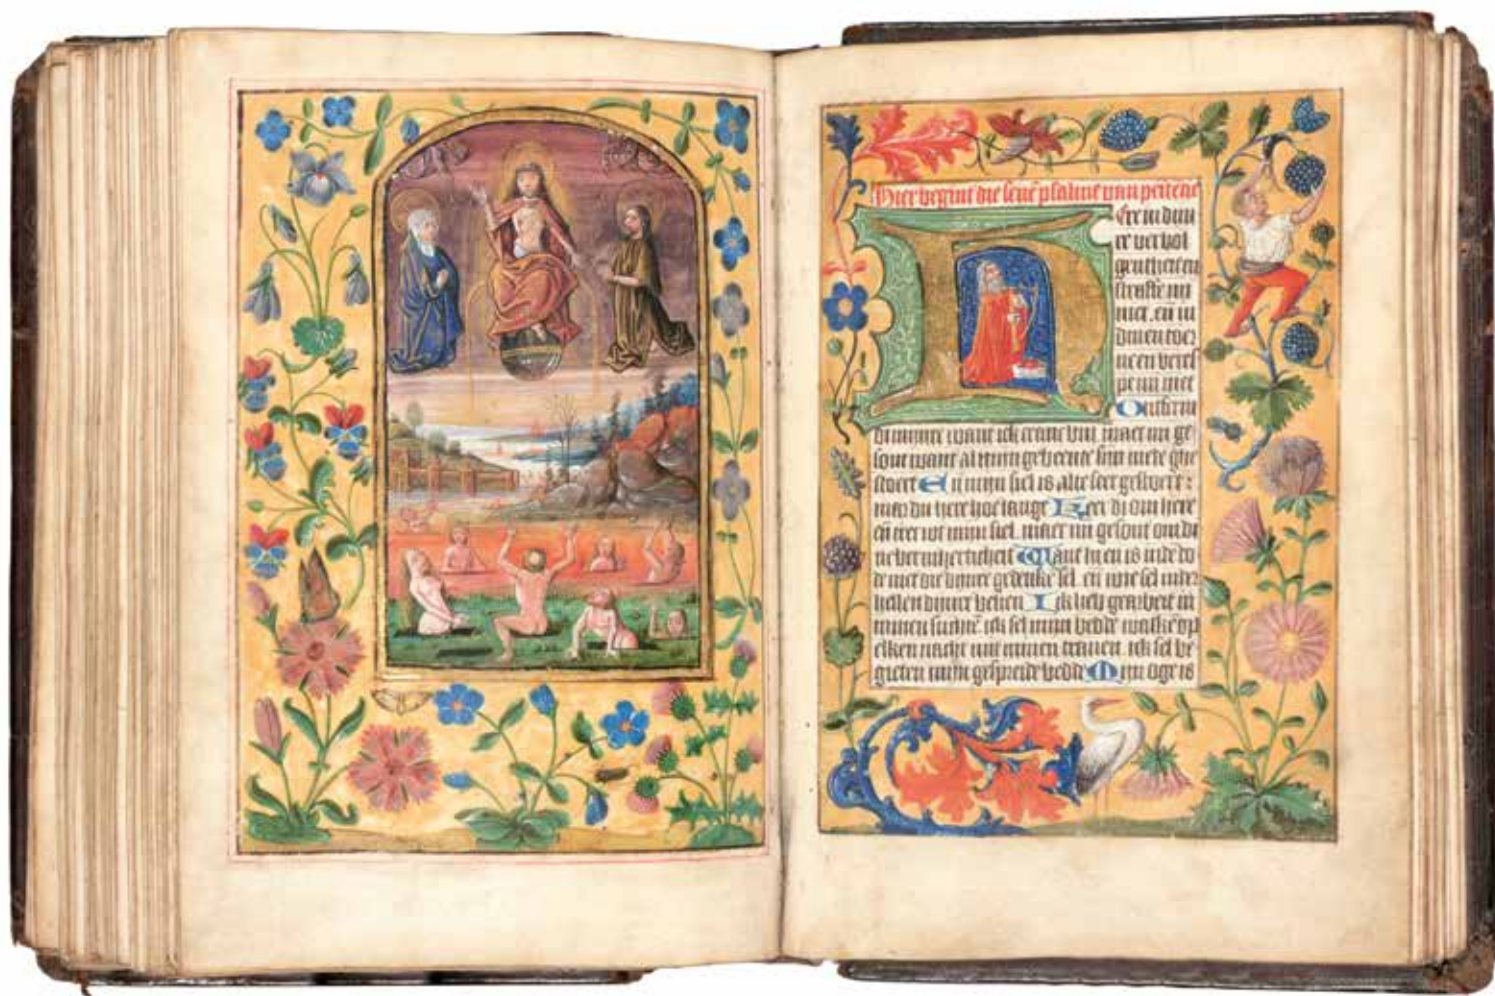 Hier begint die seue psalme van penitencie
Ere in dijn
re verbol
gentheit en
straffe mi
niet. en in
dinen toer
ne en beres
pe mi niet
Ontferm
di mijnre want ick cranc bin. maec mi ge
sont want al mijn gebeente sijn mede ghe
stoert En mijn siel is alte seer gestoert:
mer du here hoe lange Keer di om here
en trec wt mijn siel. maec mi gesont om di
ne bermherticheit Want hi en is in de do
de niet die dijnre gedenke sel. en wie sel inder
hellen dijnre belien Ick heb gearbeit in
minen suchte. ick sel mijn bedde wasschē op
elken nacht mit minen tranen. ick sel be
gieten mijn gespreide bedde Mijn oge is